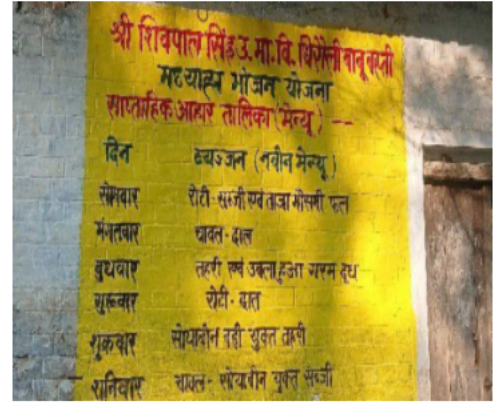 श्री शिवपाल सिंह उ. मा. वि. घिरौली बाबू बस्ती
मध्याह्न भोजन योजना
साप्ताहिक आहार तालिका (मेन्यू) --
दिन व्यञ्जन (नवीन मेन्यू)
सोमवार रोटी - सब्जी एवं ताजा मौसमी फल
मंगलवार चावल - दाल
बुधवार तहरी एवं उबला हुआ गरम दूध
गुरूवार रोटी - दाल
शुक्रवार सोयाबीन बड़ी युक्त तहरी
शनिवार चावल - सोयाबीन युक्त सब्जी